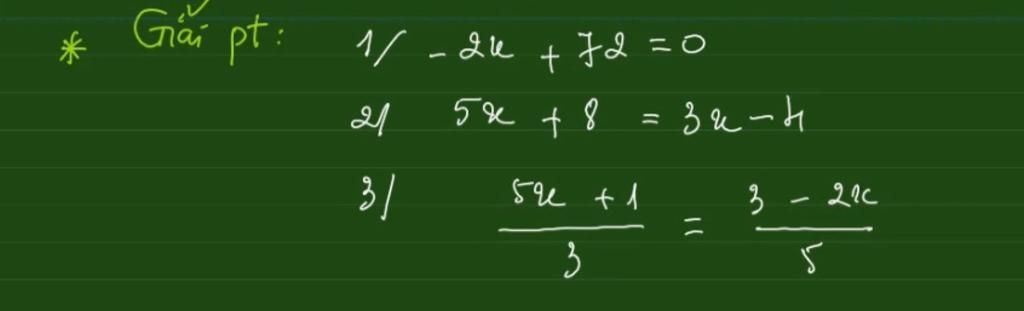 * Giải pt: 1/ -2x + 72 = 0
2/ 5x + 8 = 3x - 4
3/ (5x + 1)/3 = (3 - 2x)/5